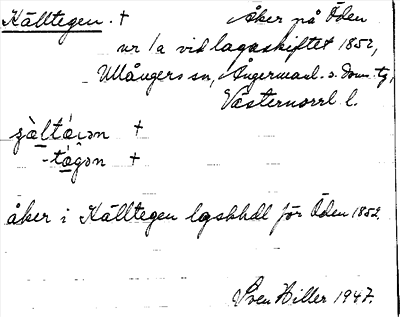 Källtegen. +
Åker på Öden
nr 1a vid lagaskiftet 1852,
Ullångers sn, Ångermanl. s. doms. tg,
Västernorrl l.
+
-tágən +
åker i Källtegen lgskhdl för Öden 1852.
Sven Hiller 1947.